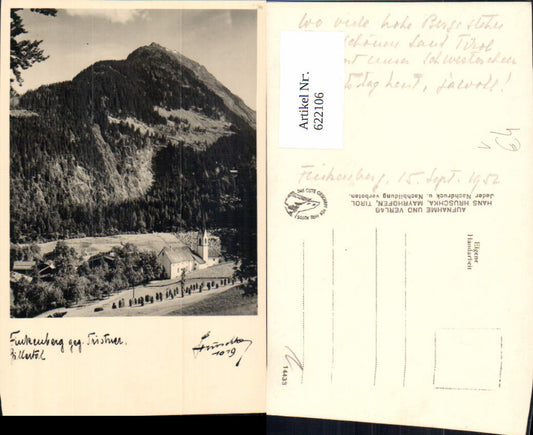 Finkenberg geg. Tristner.
Zillertal
Hruschka
1019
Wo viele hohe Berge stehn
schönen Land Tirol
unser Schwesterchen
Tag heut, jawoll!
Artikel Nr.
622106
64
Finkenberg, 15. Sept. 1952
AUFNAHME UND VERLAG
HANS HRUSCHKA, MAYRHOFEN, TIROL
Jeder Nachdruck u. Nachbildung verboten.
Eigene
Handarbeit
14433